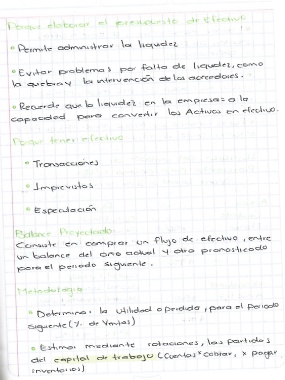 Porque elaborar el presupuesto de efectivo
° Permite administrar la liquidez
° Evitar problemas por falta de liquidez, como
la quiebra y la intervención de los acreedores.
° Recuerde que la liquidez en la empresa = a la
capacidad para convertir los Activos en efectivo.
Porque tener efectivo
° Transacciones
° Imprevistos
° Especulación
Balance Proyectado
Consiste en comprar un flujo de efectivo, entre
un balance del año actual y otro pronosticado
para el periodo siguiente.
Metodología
° Determinar la utilidad o perdida, para el periodo
siguiente (% de Ventas)
° Estimar mediante rotaciones, las partidas
del capital de trabajo (Cuentas x cobrar, x pagar
inventarios)